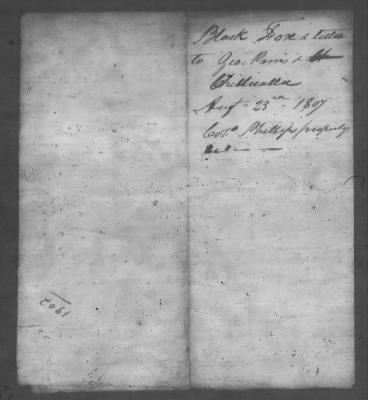 Black Fox's letter
to Geo. Parris &
Chillicothe
Augt. 23rd 1807
Colo. Phillips property
1902